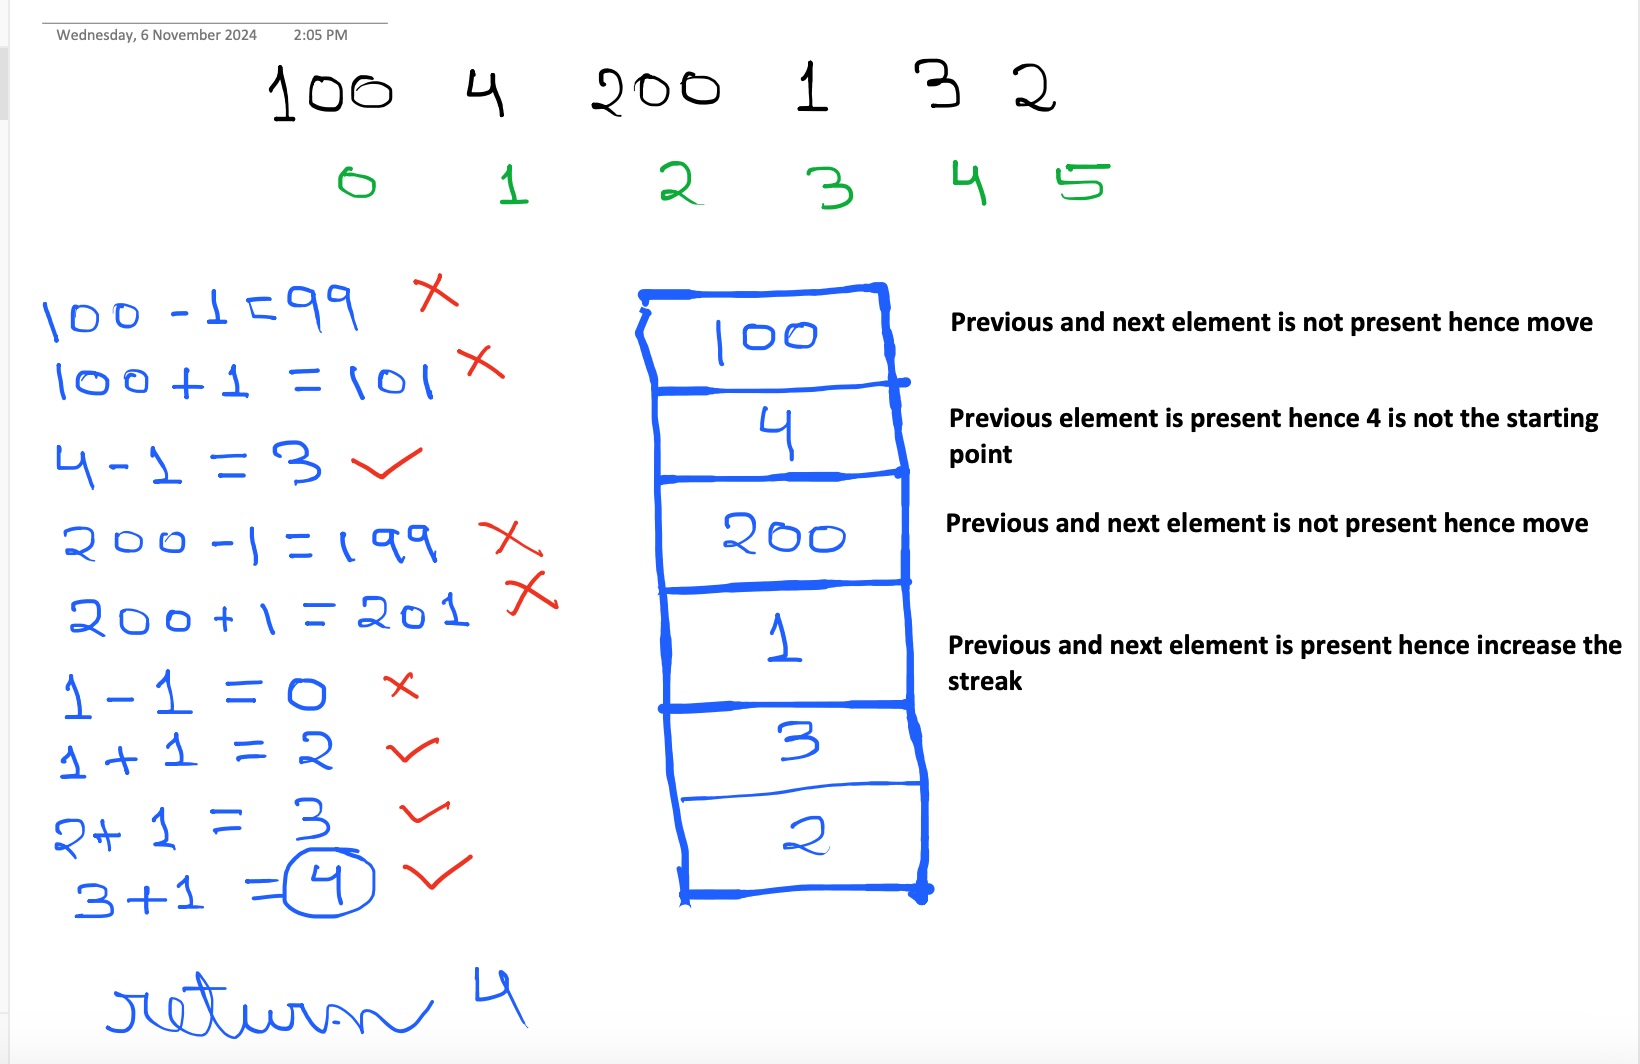 Wednesday, 6 November 2024 2:05 PM
100 4 200 1 3 2
0 1 2 3 4 5
100 - 1 = 99
100 + 1 = 101
4 - 1 = 3
200 - 1 = 199
200 + 1 = 201
1 - 1 = 0
1 + 1 = 2
2 + 1 = 3
3 + 1 = 4
return 4
100
4
200
1
3
2
Previous and next element is not present hence move
Previous element is present hence 4 is not the starting
point
Previous and next element is not present hence move
Previous and next element is present hence increase the
streak